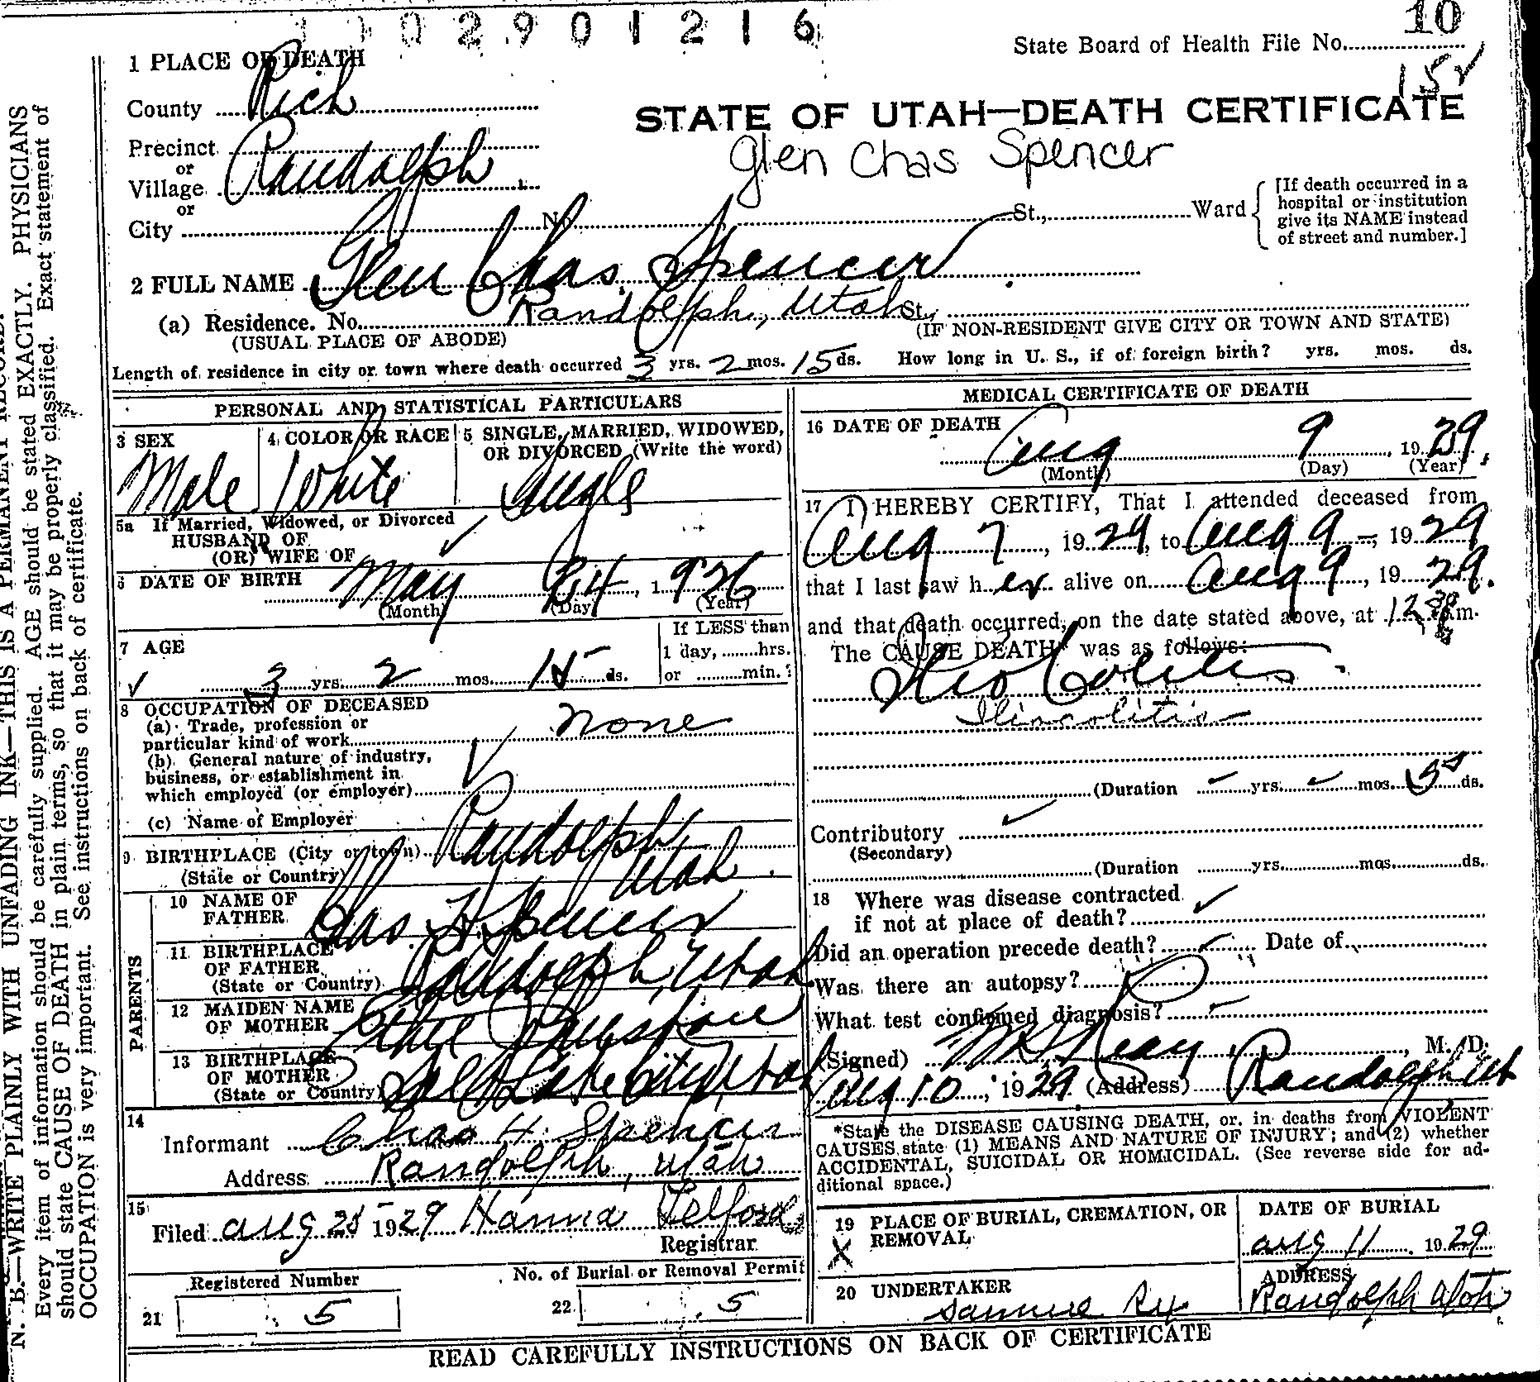 002901216
10
State Board of Health File No.
15
1 PLACE OF DEATH
County Rich
STATE OF UTAH—DEATH CERTIFICATE
Precinct
or
Village Randolph
Glen Chas Spencer
or
City No. St., Ward
[If death occurred in a
hospital or institution
give its NAME instead
of street and number.]
2 FULL NAME Glen Chas. Spencer
(a) Residence. No. Randolph, Utah St.,
(USUAL PLACE OF ABODE) (IF NON-RESIDENT GIVE CITY OR TOWN AND STATE)
Length of residence in city or town where death occurred 3 yrs. 2 mos. 15 ds. How long in U. S., if of foreign birth? yrs. mos. ds.
PERSONAL AND STATISTICAL PARTICULARS
3 SEX
Male
4 COLOR OR RACE
White
5 SINGLE, MARRIED, WIDOWED,
OR DIVORCED (Write the word)
Single
5a If Married, Widowed, or Divorced
HUSBAND OF
(OR) WIFE OF
6 DATE OF BIRTH May 24, 1926
(Month) (Day) (Year)
7 AGE
3 yrs. 2 mos. 15 ds.
If LESS than
1 day, ........hrs.
or ..........min.
8 OCCUPATION OF DECEASED
(a) Trade, profession or
particular kind of work none
(b) General nature of industry,
business, or establishment in
which employed (or employer)
(c) Name of Employer
9 BIRTHPLACE (City or town) Randolph
(State or Country) Utah
PARENTS
10 NAME OF
FATHER Chas. H. Spencer
11 BIRTHPLACE
OF FATHER
(State or Country) Randolph, Utah
12 MAIDEN NAME
OF MOTHER
13 BIRTHPLACE
OF MOTHER
(State or Country) Salt Lake City, Utah
14
Informant Chas H. Spencer
Address Randolph, Utah
15
Filed Aug 25 1929 Hanna Telford
Registrar
Registered Number
21 5
No. of Burial or Removal Permit
22 5
MEDICAL CERTIFICATE OF DEATH
16 DATE OF DEATH
Aug 9, 1929.
(Month) (Day) (Year)
17 I HEREBY CERTIFY, That I attended deceased from
Aug 7, 1929, to Aug 9, 1929
that I last saw h er alive on Aug 9, 1929.
and that death occurred, on the date stated above, at 12 30 m.
The CAUSE DEATH* was as follows:
Ileo Colitis
Iliocolitis
(Duration yrs. mos. 5 ds.
Contributory
(Secondary)
(Duration yrs. mos. ds.
18 Where was disease contracted
if not at place of death?
Did an operation precede death? Date of
Was there an autopsy?
What test confirmed diagnosis?
(Signed) Reay, M. D.
Aug 10, 1929 (Address) Randolph Ut
*State the DISEASE CAUSING DEATH, or, in deaths from VIOLENT
CAUSES state (1) MEANS AND NATURE OF INJURY; and (2) whether
ACCIDENTAL, SUICIDAL OR HOMICIDAL. (See reverse side for ad-
ditional space.)
19 PLACE OF BURIAL, CREMATION, OR
REMOVAL
X
DATE OF BURIAL
Aug 11 1929
20 UNDERTAKER
Samuel Rex
ADDRESS
Randolph Utah
READ CAREFULLY INSTRUCTIONS ON BACK OF CERTIFICATE
N. B.—WRITE PLAINLY WITH UNFADING INK—THIS IS A PERMANENT RECORD.
Every item of information should be carefully supplied. AGE should be stated EXACTLY. PHYSICIANS
should state CAUSE OF DEATH in plain terms, so that it may be properly classified. Exact statement of
OCCUPATION is very important. See instructions on back of certificate.